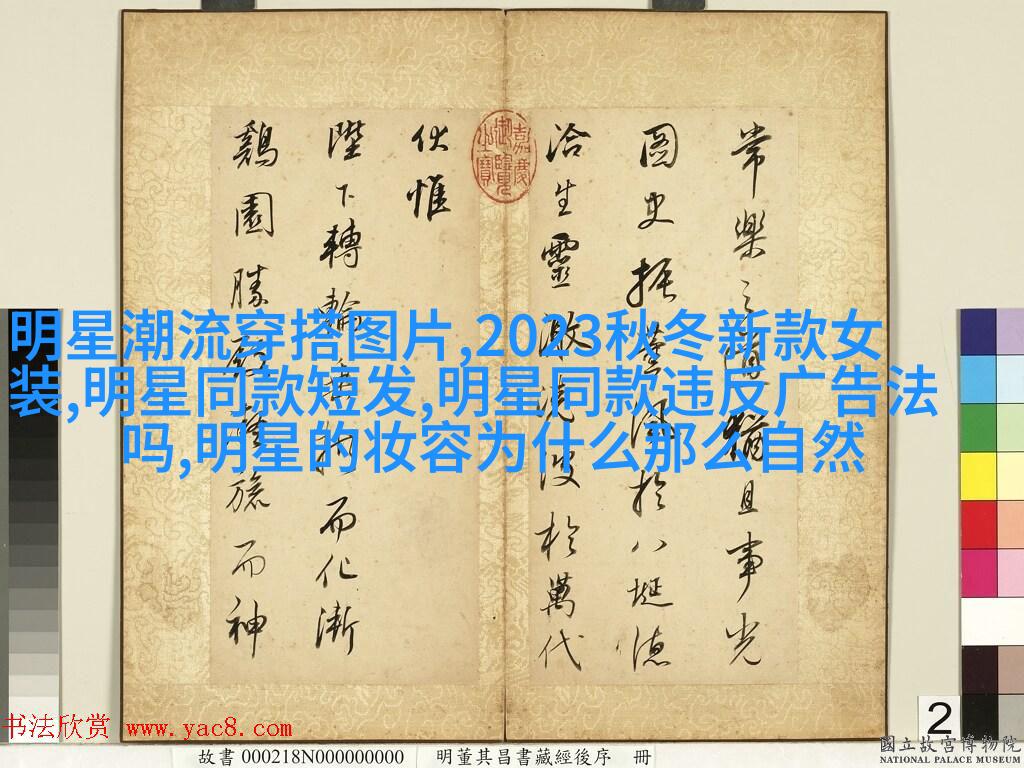 常樂之清猶且事光
圖史振薰風於八埏德
洽生靈激澆波於萬代
伏惟
陛下轉輪垂拱而化漸
鷄園勝而神
嘉慶御覽之寶
明星潮流穿搭图片,2023秋冬新款女
装,明星同款短发,明星同款违反广告法
吗,明星的妆容为什么那么自然
书法欣赏 www.yac8.com
故書 000218N000000000 明董其昌書藏經後序 冊
2
國立故宮博物院
NATIONAL PALACE MUSEUM